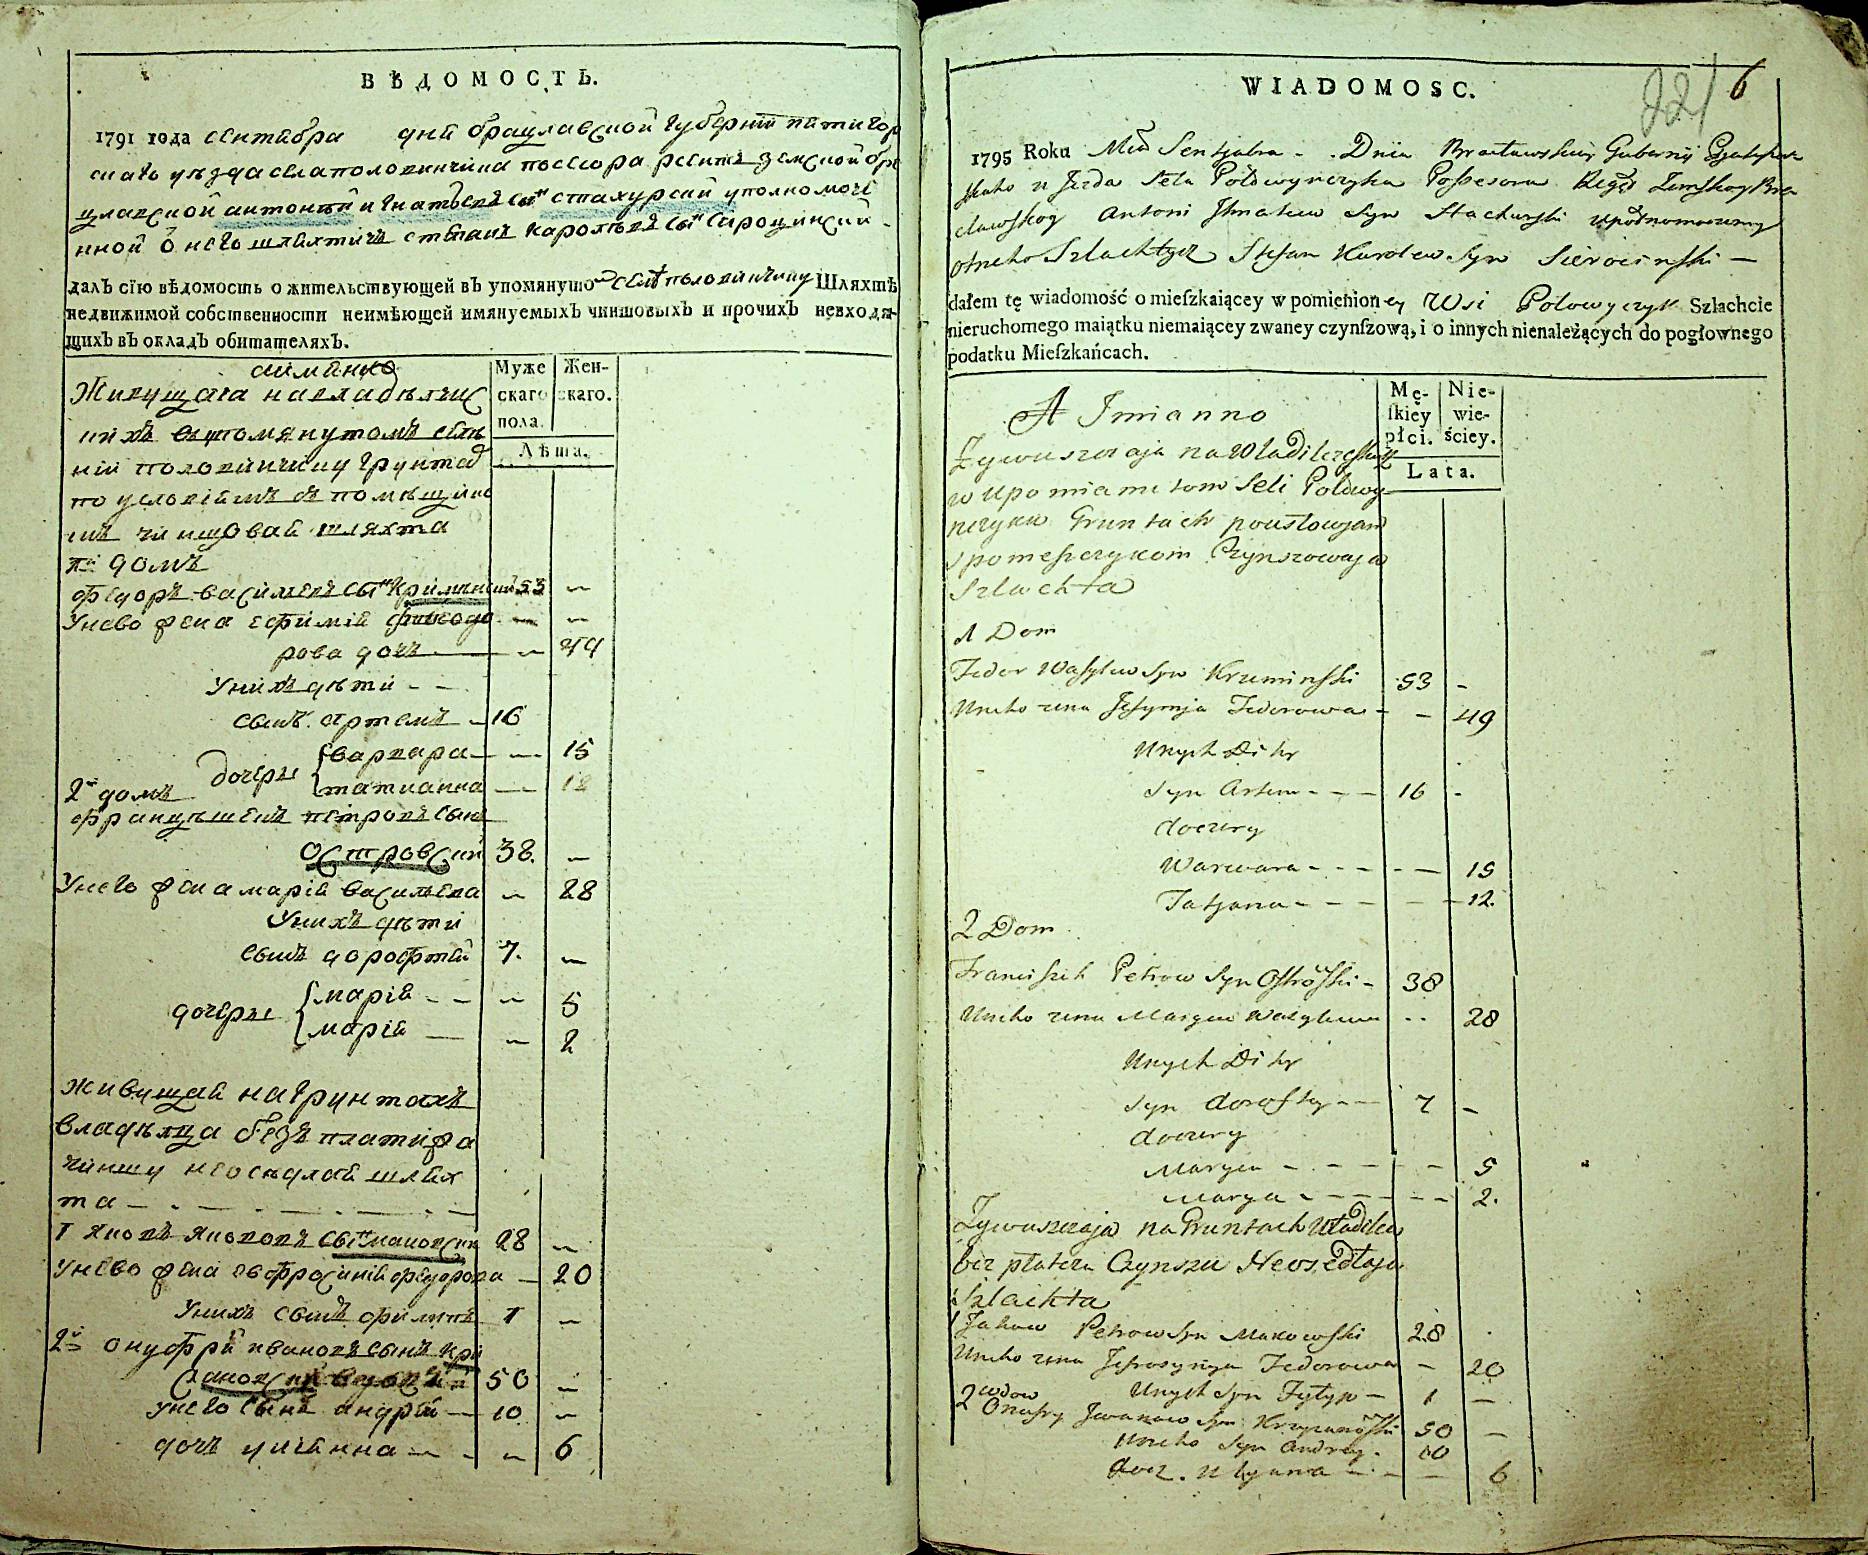 ВѢДОМОСТЬ.
1791 года сентября дня брацлавской губернии пятигор
скаго уѣзда села половинчика посесора земской бра
цлавской антоній игнатьевъ сынъ стахурскій уполномоче
нной о него шляхтичъ стефанъ каролевъ сынъ сироцинский
далъ сїю вѣдомость о жительствующей въ упомянуто селе половинчику Шляхтѣ
недвижимой собственности неимѣющей имянуемыхъ чиншовыхъ и прочихъ невходя-
щихъ въ окладъ обитателяхъ.
аимянно
Живущая навладѣлчес
кихъ вупомянутомъ селе
половинчику грунтах
по условіямъ съ помѣщико
мъ чиншовая шляхта
Муже
скаго
пола.
Жен-
скаго.
Лѣта.
1й домъ
Федоръ василевъ сынъ криминский 53 —
Унево жена ефимія федо — —
рова дочь — 49
Унихъ дѣти - -
сынъ артемъ - 16
дочери варвара — — 15
татианна — 12
2й домъ
францышекъ петровъ сынъ
островский 38. —
Унего жена марія василева — 28
Унихъ дѣти
сынъ дорофтей 7. —
дочери марія - - — 5
марія — — 2
живущая на грунтахъ
владѣлца безъ платижа
чиншу неоседлая шлях
та
1 яковъ яковов сынъ маковски 28 —
Унево жена евфросинія федорова — 20
Унихъ сынъ филипъ 1 —
2й онуфрій ивановъ сынъ кри
вдовый 50 —
унего сынъ андрей — 10 —
дочь улианна — — 6
WIADOMOSC.
221 6
1795 Roku Mca Sentjabra - . Dnia Bracławskiey Gubernij
Uezda Seła Połowynczyka Possesora Regt Zemskoy Bra
cławskoy Antoni Ihnatiew Syn Stachurski upołnomoczeny
otneho Szlachtycz Stefan Karolew Syn Sierocinski —
dałem tę wiadomość o mieſzkaiącey w pomienioney Wsi Połowyczyk Szlachcie
nieruchomego maiątku niemaiącey zwaney czynſzową, i o innych nienależących do pogłownego
podatku Mieſzkańcach.
A Imianno
Mę-
ſkiey
płci.
Nie-
wie-
ściey.
Lata.
Żywuszczaja na Władilczeskich
w upomianutom Seli Połowy
nczyku Gruntach pousłowjam
spomeszczykom Czynszowaja
Szlachta
1 Dom
Fedor Wasylew Syn Kruminski 53 -
Uneho zena Jefymja Fedorowa - - 49
Unych Dity
Syn Artem - - - 16 -
doczery
Warwara - - - - — 15
Tatjana - - - - - 12.
2 Dom
Franciszek Petrow Syn Ostrowski - 38
Uneho zena Marya Wasylewa - - 28
Unych Dity
Syn dorofty - - 7 -
doczery
Marya - - - - - 5
Marya - - - - - - 2.
Żywuszczaja na Gruntach Władilca
bez płateza Czynszu Neosedłaja
Szlachta
1 Jakow Petrow Syn Makowski 28 .
Uneho zena Jefrosynya Fedorowa - 20
Unych Syn Fylyp - 1 —
2 wdow Onufry Jwanow Syn 50 —
Uneho Syn Andrey - 10
docz. Ulyana - - - — 6